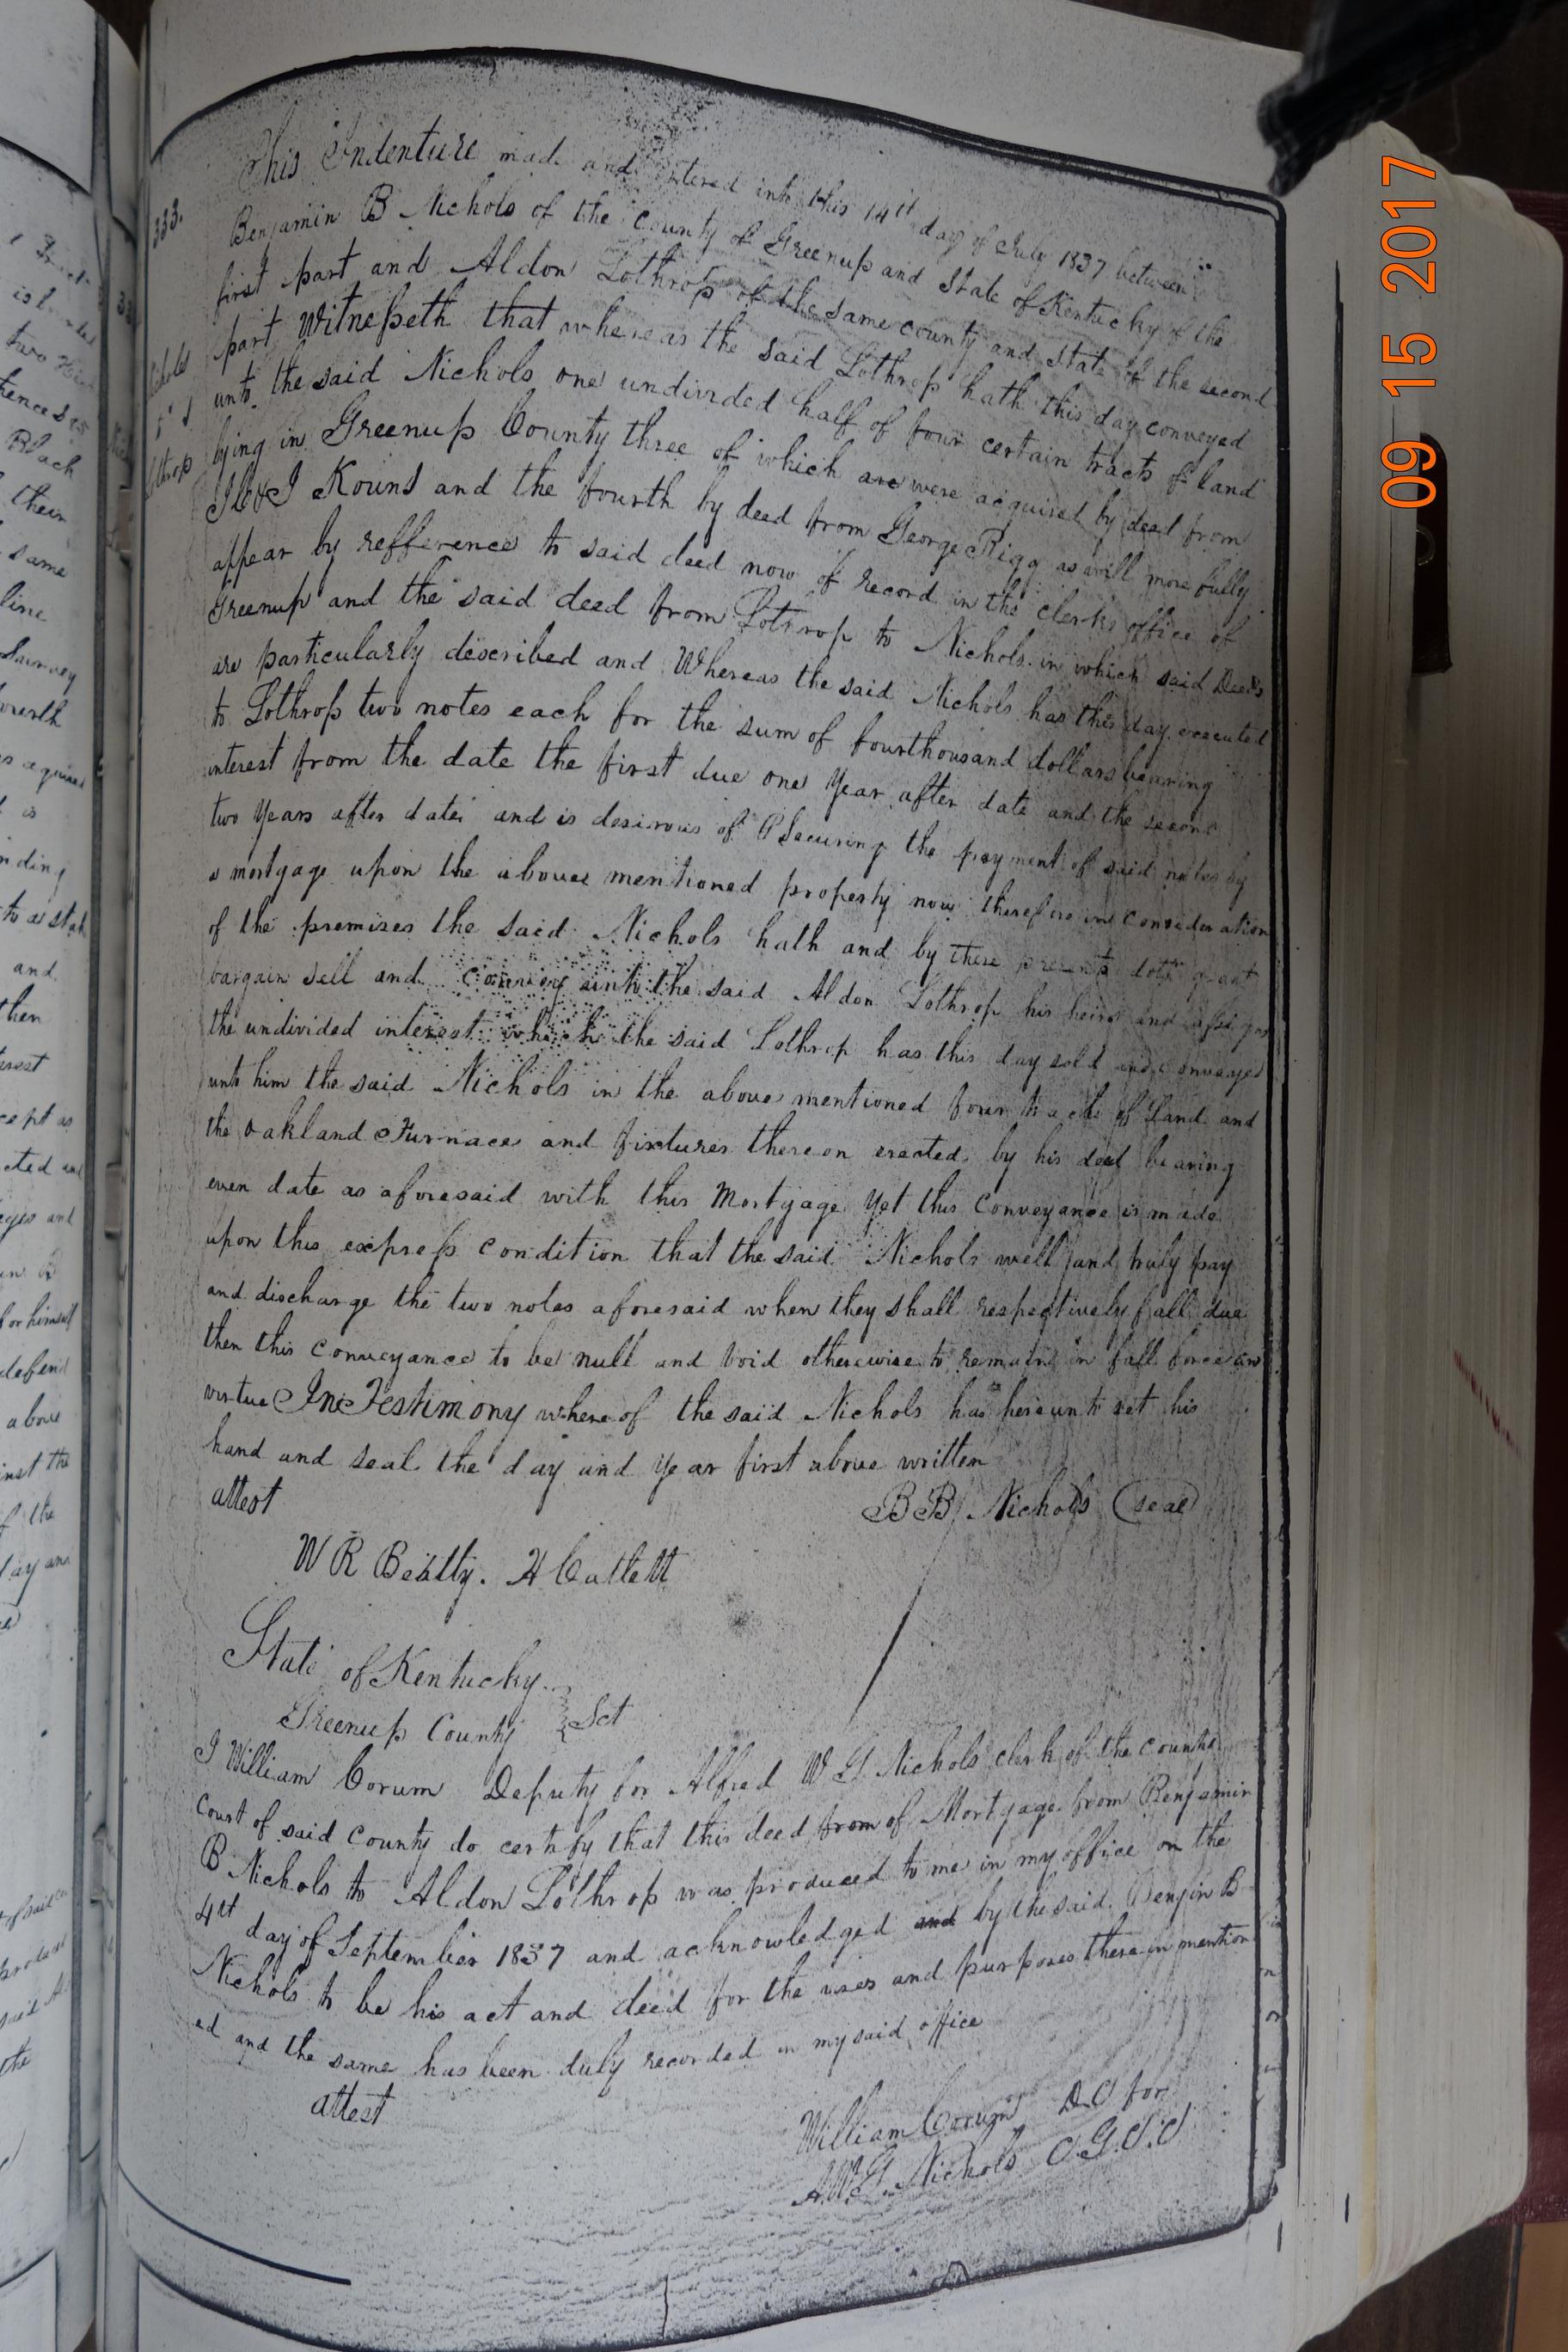 333.
Nichols
to
Lothrop
This Indenture made and entered into this 14th day of July 1837 between
Benjamin B Nichols of the County of Greenup and State of Kentucky of the
first part and Aldon Lothrop of the same county and State of the second
part Witnesseth that whereas the said Lothrop hath this day conveyed
unto the said Nichols one undivided half of four certain tracts of land
lying in Greenup County three of which are were acquired by deed from
J C & J Kouns and the fourth by deed from George Rigg as will more fully
appear by refference to said deed now of record in the clerks office of
Greenup and the said deed from Lothrop to Nichols in which said Deeds
are particularly described and Whereas the said Nichols has this day executed
to Lothrop two notes each for the sum of fourthousand dollars bearing
interest from the date the first due one Year after date and the second
two Years after date and is desirous of Securing the payment of said notes by
a mortgage upon the above mentioned property now therefore in consideration
of the premises the said Nichols hath and by these presents doth grant
bargain sell and convey unto the said Aldon Lothrop his heirs and assigns
the undivided interest which the said Lothrop has this day sold and conveyed
unto him the said Nichols in the above mentioned four tracts of Land and
the oakland Furnace and fixtures thereon erected by his deed bearing
even date as aforesaid with this Mortgage Yet this Conveyance is made
upon this express condition that the said Nichols well and truly pay
and discharge the two notes aforesaid when they shall respectively fall due
then this conveyance to be null and void otherwise to remain in full force and
virtue In Testimony where of the said Nichols has hereunto set his
hand and seal the day and Year first above written
attest
B B Nichols (seal)
W R Beatty. H Catlett
State of Kentucky
Greenup County } Sct
I William Corum Deputy for Alfred W G Nichols clerk of the county
court of said county do certify that this deed from of Mortgage from Benjamin
B Nichols to Aldon Lothrop was produced to me in my office on the
4th day of September 1837 and acknowledged and by the said Benjin B
Nichols to be his act and deed for the uses and purposes therein mention
ed and the same has been duly recorded in my said office
attest
William Corum D.C for
A.W.G. Nichols C.G.C.C
09 15 2017